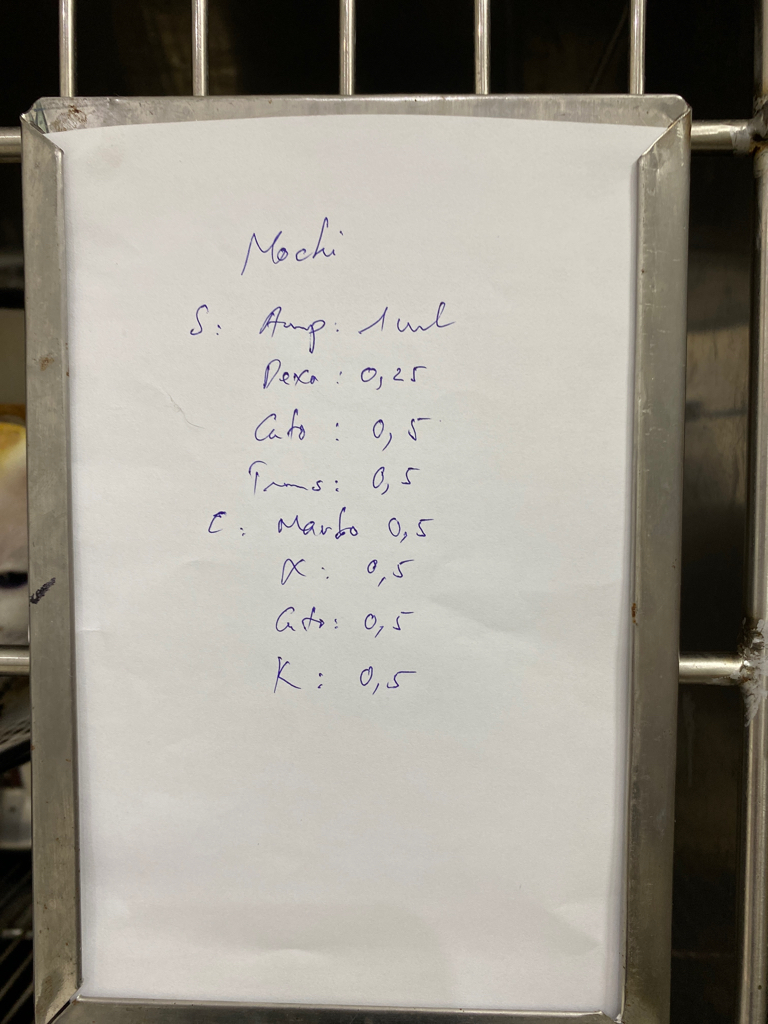 Mochi
S: Amp: 1ml
Dexa: 0,25
Cato: 0,5
Trans: 0,5
C: Marbo 0,5
α: 0,5
Cato: 0,5
K: 0,5